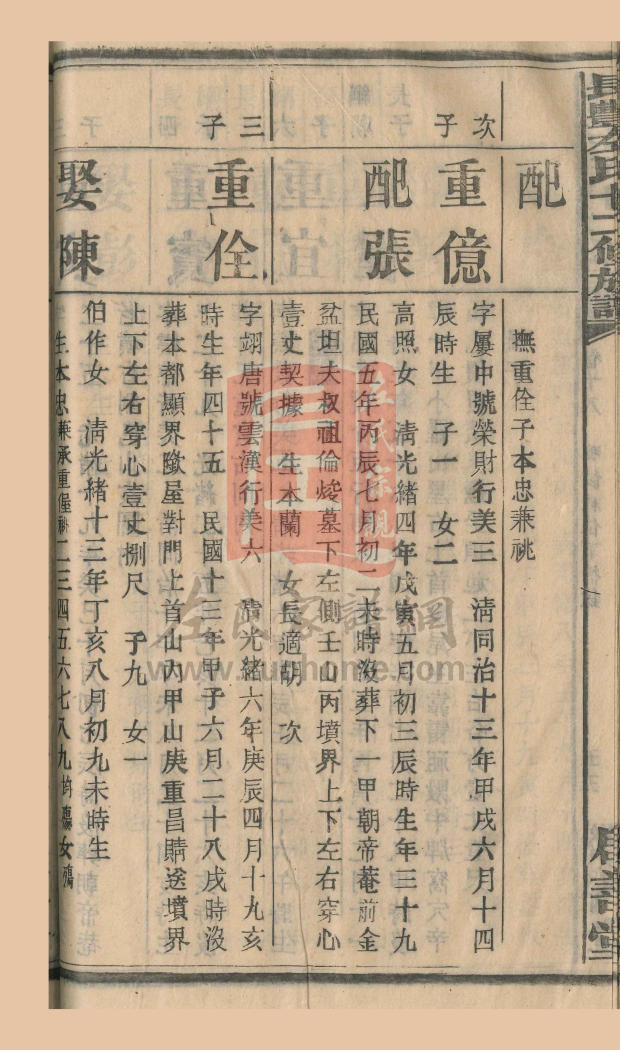 長豐左氏十二修族譜
配
撫重佺子本忠兼祧
次子
重億
字屢中號榮財行美三　清同治十三年甲戌六月十四
辰時生　子一　女二
配張
高照女　清光緒四年戊寅五月初三辰時生年三十九
民國五年丙辰七月初二未時沒葬下一甲朝帝菴前金
盆坦夫叔祖倫焌墓下左側壬山丙墳界上下左右穿心
壹丈契據　生本蘭　女長適胡　次
三子
重佺
字翊唐號雲漢行美六　清光緒六年庚辰四月十九亥
時生年四十五　民國十三年甲子六月二十八戌時沒
葬本都顯界屋對門上首山內甲山庚重昌賻送墳界
上下左右穿心壹丈捌尺　子九　女一
娶陳
伯作女　清光緒十三年丁亥八月初九未時生
生本忠兼承重偓祧二三四五六七八九均殤女殤
善堂
左氏宗親
左氏家譜網
www.zuohome.com